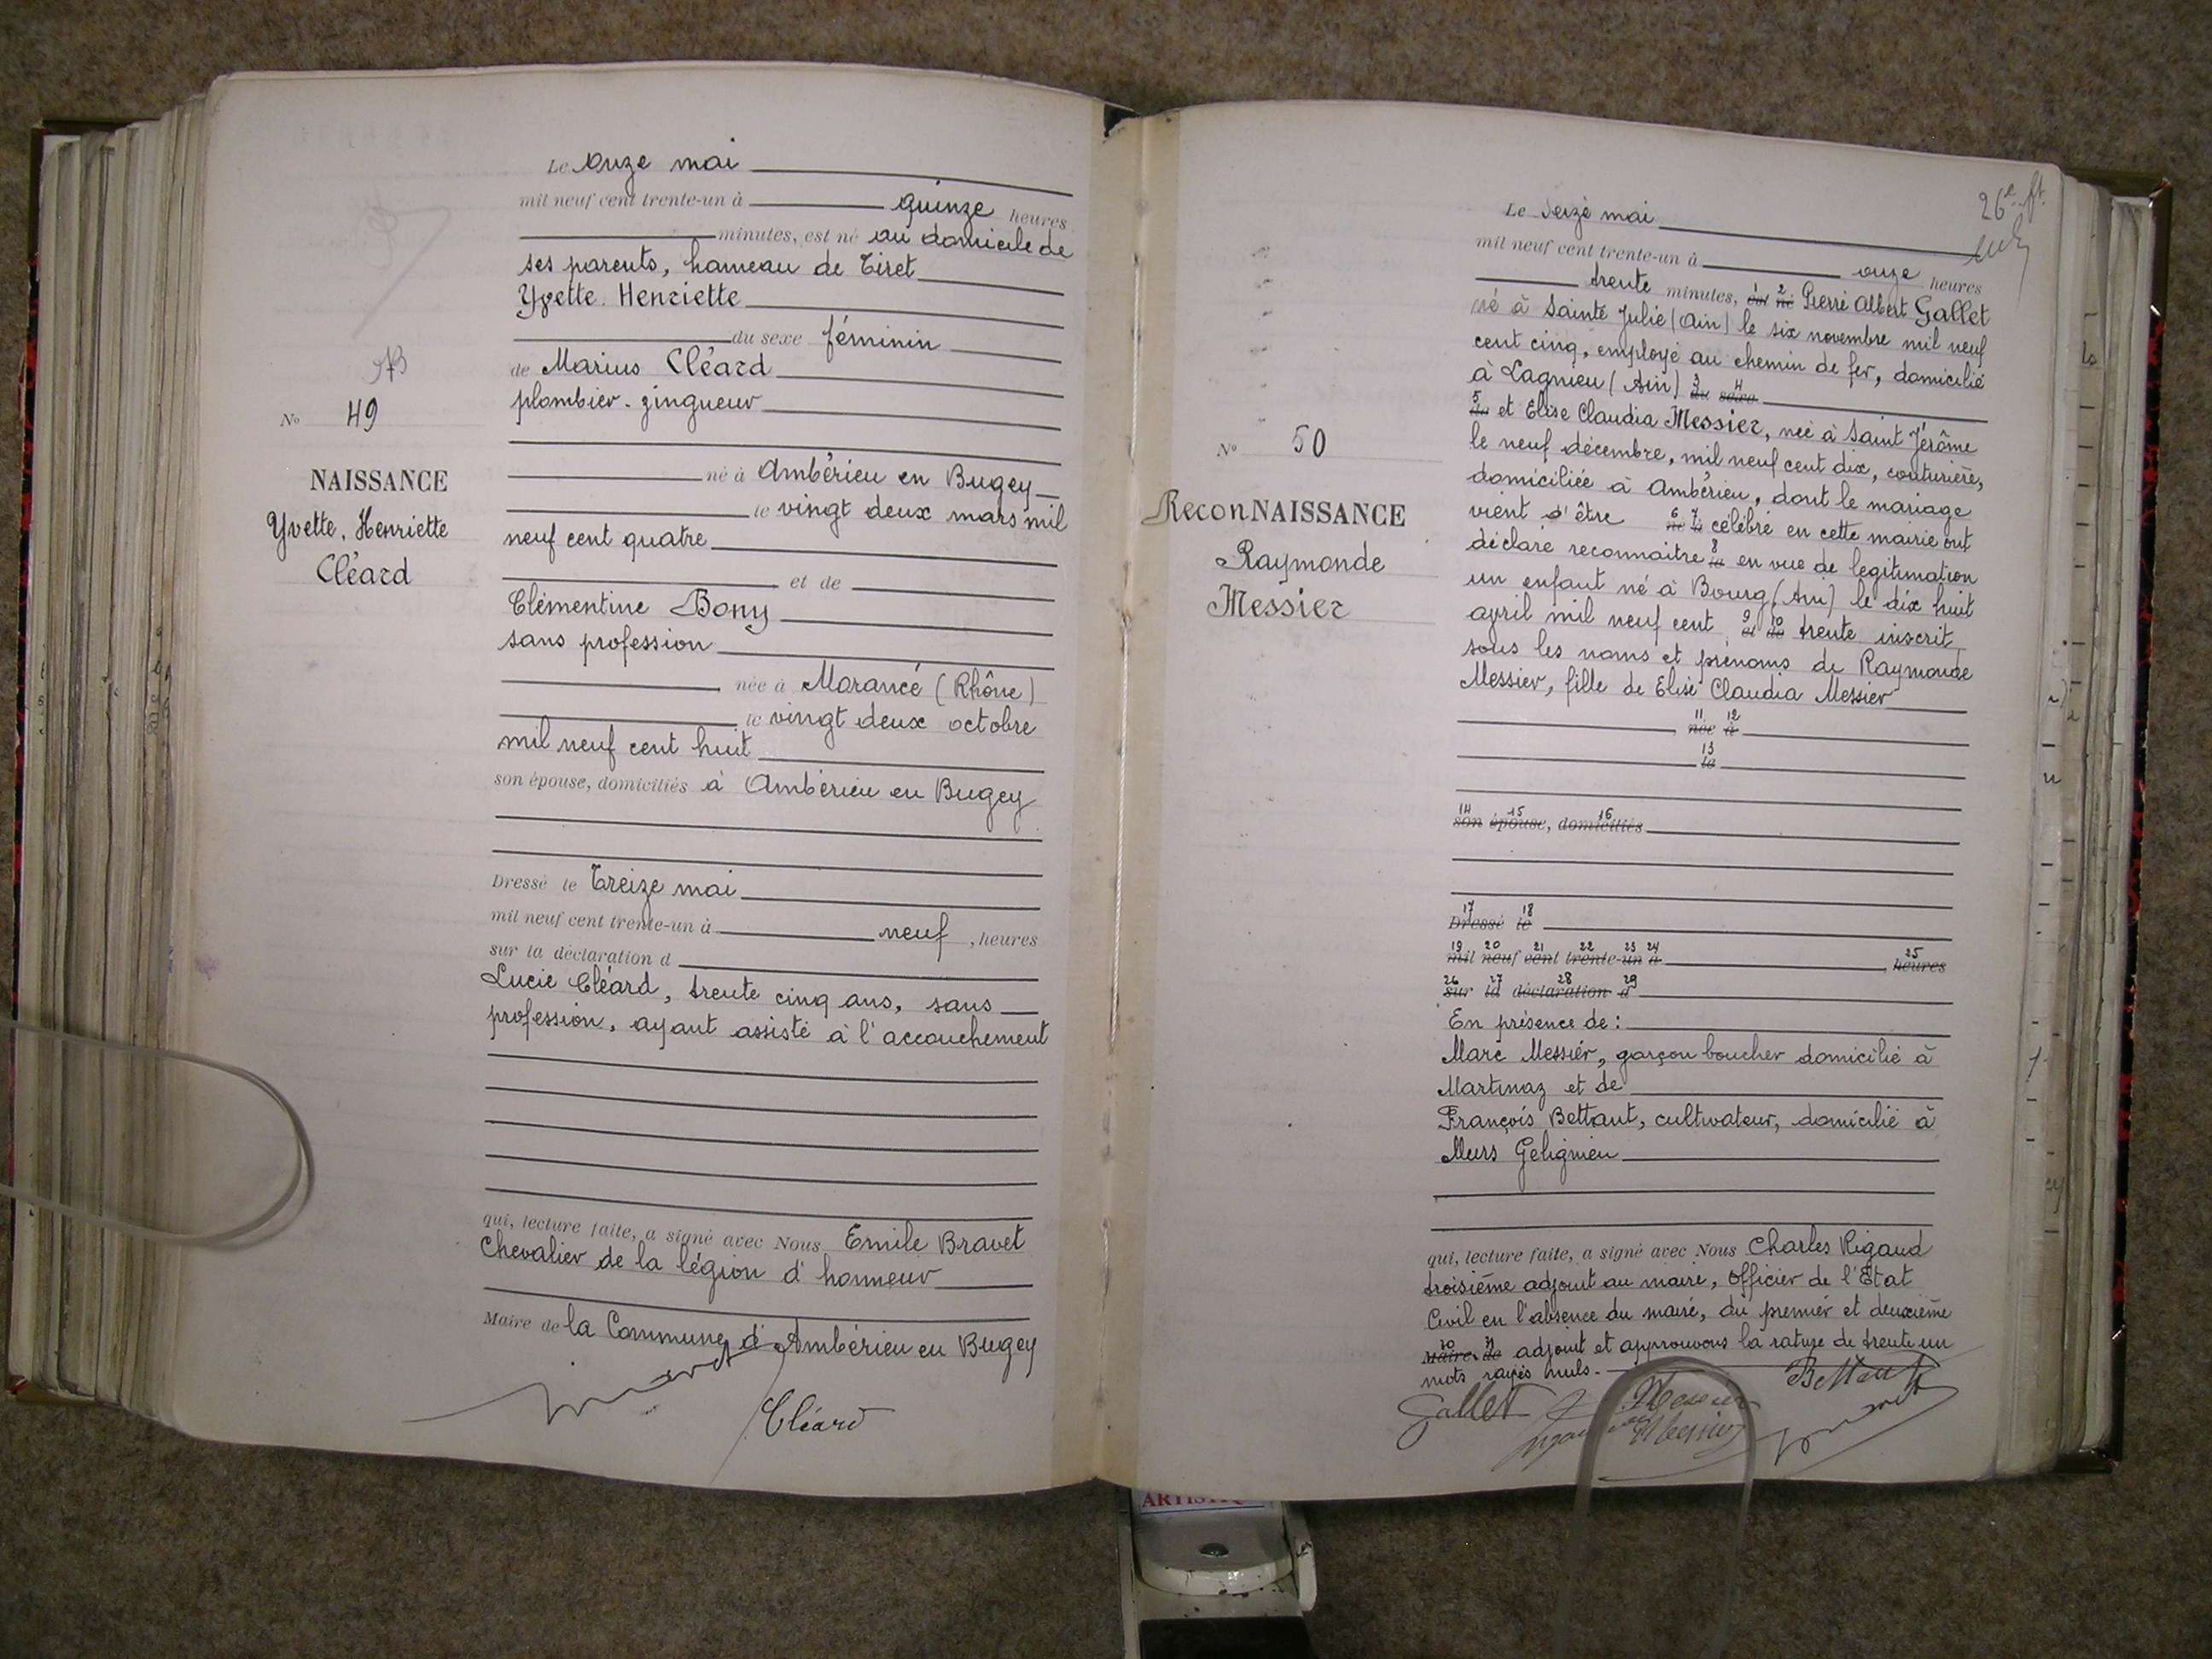 Le onze mai
mil neuf cent trente-un à quinze heures
minutes, est né au domicile de
ses parents, hameau de Tiret
Yvette. Henriette
du sexe féminin
de Marius Cléard
plombier-zingueur
né à Ambérieu en Bugey
le vingt deux mars mil
neuf cent quatre
et de
Clémentine Bony
sans profession
née à Morancé (Rhône)
le vingt deux octobre
mil neuf cent huit
son épouse, domiciliés à Ambérieu en Bugey
Dressé le Treize mai
mil neuf cent trente-un à neuf, heures
sur la déclaration d
Lucie Cléard, trente cinq ans, sans
profession, ayant assisté à l'accouchement
qui, lecture faite, a signé avec Nous Emile Bravet
Chevalier de la légion d'honneur
Maire de la Commune d'Ambérieu en Bugey
Cléard
No 49
NAISSANCE
Yvette, Henriette
Cléard
26e ft.
Le seize mai
mil neuf cent trente-un à onze heures
trente minutes, 1 est 2 né Pierre Albert Gallet
né à Sainte Julie (Ain) le six novembre mil neuf
cent cinq, employé au chemin de fer, domicilié
à Lagnieu (Ain) 3 du 4 sexe
5 de et Elise Claudia Messier, née à Saint Jérôme
le neuf décembre, mil neuf cent dix, couturière,
domiciliée à Ambérieu, dont le mariage
vient d'être 6 né 7 à célébré en cette mairie ont
déclaré reconnaitre 8 le en vue de legitimation
un enfant né à Bourg (Ain) le dix huit
avril mil neuf cent 9 et 10 de trente inscrit
sous les noms et prénoms de Raymonde
Messier, fille de Elise Claudia Messier
11 née 12 à
13 le
14 son 15 épouse, 16 domiciliés
17 Dressé 18 le
19 mil 20 neuf 21 cent 22 trente-23 un 24 à 25 heures
26 sur 27 la 28 déclaration 29 d
En présence de :
Marc Messier, garçon boucher domicilié à
Martinaz et de
François Bettant, cultivateur, domicilié à
Murs Gelignieu
qui, lecture faite, a signé avec Nous Charles Rigaud
troisième adjoint au maire, Officier de l'Etat
Civil en l'absence du maire, du premier et deuxième
30 Maire 31 de adjoint et approuvons la rature de trente un
mots rayés nuls.
Bettant
Gallet Messier
Messier
No 50
ReconNAISSANCE
Raymonde
Messier
ARTISTIQ